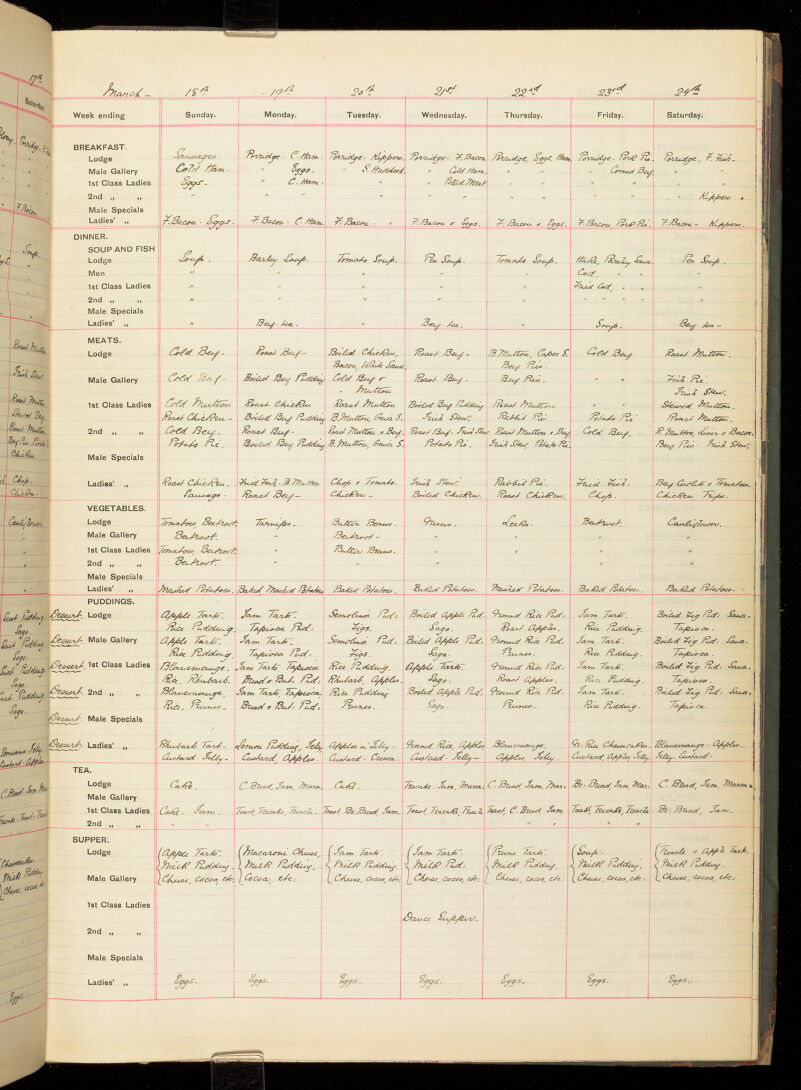 March - 18th 19th 20th 21st 22nd 23rd 24th
Week ending Sunday. Monday. Tuesday. Wednesday. Thursday. Friday. Saturday.
BREAKFAST.
Lodge Sausages. Porridge. C. Ham. Porridge. Kippers. Porridge. F. Bacon Porridge, Eggs, Ham. Porridge. Pork Pie. Porridge, F. Fish.
Male Gallery Cold Ham. " Eggs. " S. Haddock. " Cold Ham. " " " Corned Beef " "
1st Class Ladies Eggs. " C. Ham. " " " Potted Meat " " " " " "
2nd " " " " " " " " " " " " Kippers "
Male Specials
Ladies' " F. Bacon - Eggs. F. Bacon - C. Ham. F. Bacon - " F. Bacon & Eggs. F. Bacon & Eggs. F. Bacon, Pork Pie. F. Bacon - Kippers.
DINNER.
SOUP AND FISH
Lodge Soup. Barley Soup. Tomato Soup. Pea Soup. Tomato Soup. Hake, Parsley Sauce. Pea Soup.
Men " " " " " Cod. " " "
1st Class Ladies " " " " " Fried Cod, " " "
2nd " " " " " " " " " " " "
Male Specials
Ladies' " " Beef-tea. " Beef-tea. " Soup. Beef-tea -
MEATS.
Lodge Cold Beef - Roast Beef - Boiled Chicken, Roast Beef - B. Mutton, Caper S. Cold Beef Roast Mutton.
Bacon, White Sauce. Beef Pies.
Male Gallery Cold Beef - Boiled Beef Pudding Cold Beef & Roast Beef - Beef Pies. " " Fish Pie.
" Mutton Irish Stew.
1st Class Ladies Cold Mutton Roast Chicken Roast Mutton Boiled Beef Pudding Roast Mutton " " Stewed Mutton.
Roast Chicken - Boiled Beef Pudding B. Mutton, Onion S. Irish Stew. Rabbit Pie Potato Pie Roast Mutton.
2nd " " Cold Beef. Roast Beef. Roast Mutton & Beef Roast Beef. Irish Stew Roast Mutton & Beef Cold Beef. R. Mutton, Liver & Bacon.
Potato Pie. Boiled Beef Pudding B. Mutton, Onion S. Potato Pie. Irish Stew, Potato Pie. Beef Pies Irish Stew.
Male Specials
Ladies' " Roast Chicken. Fried Fish. B. Mutton Chop & Tomato. Irish Stew. Rabbit Pie. Fried Fish. Beef Cutlets & Tomatoes.
Sausage. Roast Beef - Chicken - Boiled Chicken. Roast Chicken. Chop. Chicken, Tripe.
VEGETABLES.
Lodge Tomatoes Beetroot. Turnips. Butter Beans. Greens. Leeks. Beetroot. Cauliflower.
Male Gallery Beetroot. " Beetroot - " " " "
1st Class Ladies Tomatoes, Beetroot. " Butter Beans. " " " "
2nd " " Beetroot. "
Male Specials
Ladies' " Mashed Potatoes. Baked Mashed Potatoes Baked Potatoes. Baked Potatoes. Mashed Potatoes. Baked Potatoes. Baked Potatoes.
PUDDINGS.
Dessert Lodge Apple Tart. Jam Tart. Semolina Pud: Boiled Apple Pud. Ground Rice Pud. Jam Tart. Boiled Fig Pud. Sauce -
Rice Pudding. Tapioca Pud: Figs. Sago. Roast Apples. Rice Pudding. Tapioca.
Dessert Male Gallery Apple Tart. Jam Tart. Semolina Pud: Boiled Apple Pud. Ground Rice Pud: Jam Tart. Boiled Fig Pud. Sauce.
Rice Pudding. Tapioca Pud: Figs. Sago. Prunes. Rice Pudding. Tapioca.
Dessert 1st Class Ladies Blancmange. Jam Tart Tapioca Rice Pudding. Apple Tart. Ground Rice Pud: Jam Tart. Boiled Fig Pud. Sauce.
Rice, Rhubarb. Bread & But. Pud: Rhubarb, Apples. Sago. Roast Apples. Rice Pudding. Tapioca.
Dessert 2nd " " Blancmange, Jam Tart, Tapioca Rice Pudding Boiled Apple Pud. Ground Rice Pud: Jam Tart. Boiled Fig Pud. Sauce.
Rice, Prunes. Bread & But. Pud: Prunes. Sago. Prunes. Rice Pudding. Tapioca.
Dessert Male Specials
Dessert Ladies' " Rhubarb Tart. Lemon Pudding, Jelly Apples in Jelly - Ground Rice, Apples. Blancmange. Gr. Rice Cheesecakes. Blancmange - Apples.
Custard - Jelly - Custard, Apples. Custard - Cream. Custard - Jelly - Apples, Jelly. Custard, Apples, Jelly Jelly. Custard -
TEA.
Lodge Cake. C. Bread, Jam, Marm. Cake. Teacake. Jam, Marm: C. Bread, Jam, Mar. Br: Bread, Jam, Mar: C. Bread, Jam, Marm
Male Gallery
1st Class Ladies Cake. Jam. Toast, Teacake, Treacle. Toast, Br. Bread, Jam. Toast, Teacake, Treacle Toast, C. Bread Jam Toast, Teacake, Treacle Br. Bread, Jam.
2nd " " " " " " " "
SUPPER.
Lodge Apple Tart. Macaroni Cheese, Jam Tart. Jam Tart. Prune Tart. Soup. Treacle & Apple Tart.
Milk Pudding. Milk Pudding, Milk Pudding. Milk Pud: Milk Pudding. Milk Pudding. Milk Pudding.
Male Gallery Cheese, cocoa, etc: Cocoa, etc: Cheese, cocoa, etc: Cheese, cocoa, etc: Cheese, cocoa, etc: Cheese, cocoa, etc: Cheese, cocoa, etc.
1st Class Ladies
Dance Supper.
2nd " "
Male Specials
Ladies' " Eggs. Eggs. Eggs. Eggs. Eggs. Eggs. Eggs.